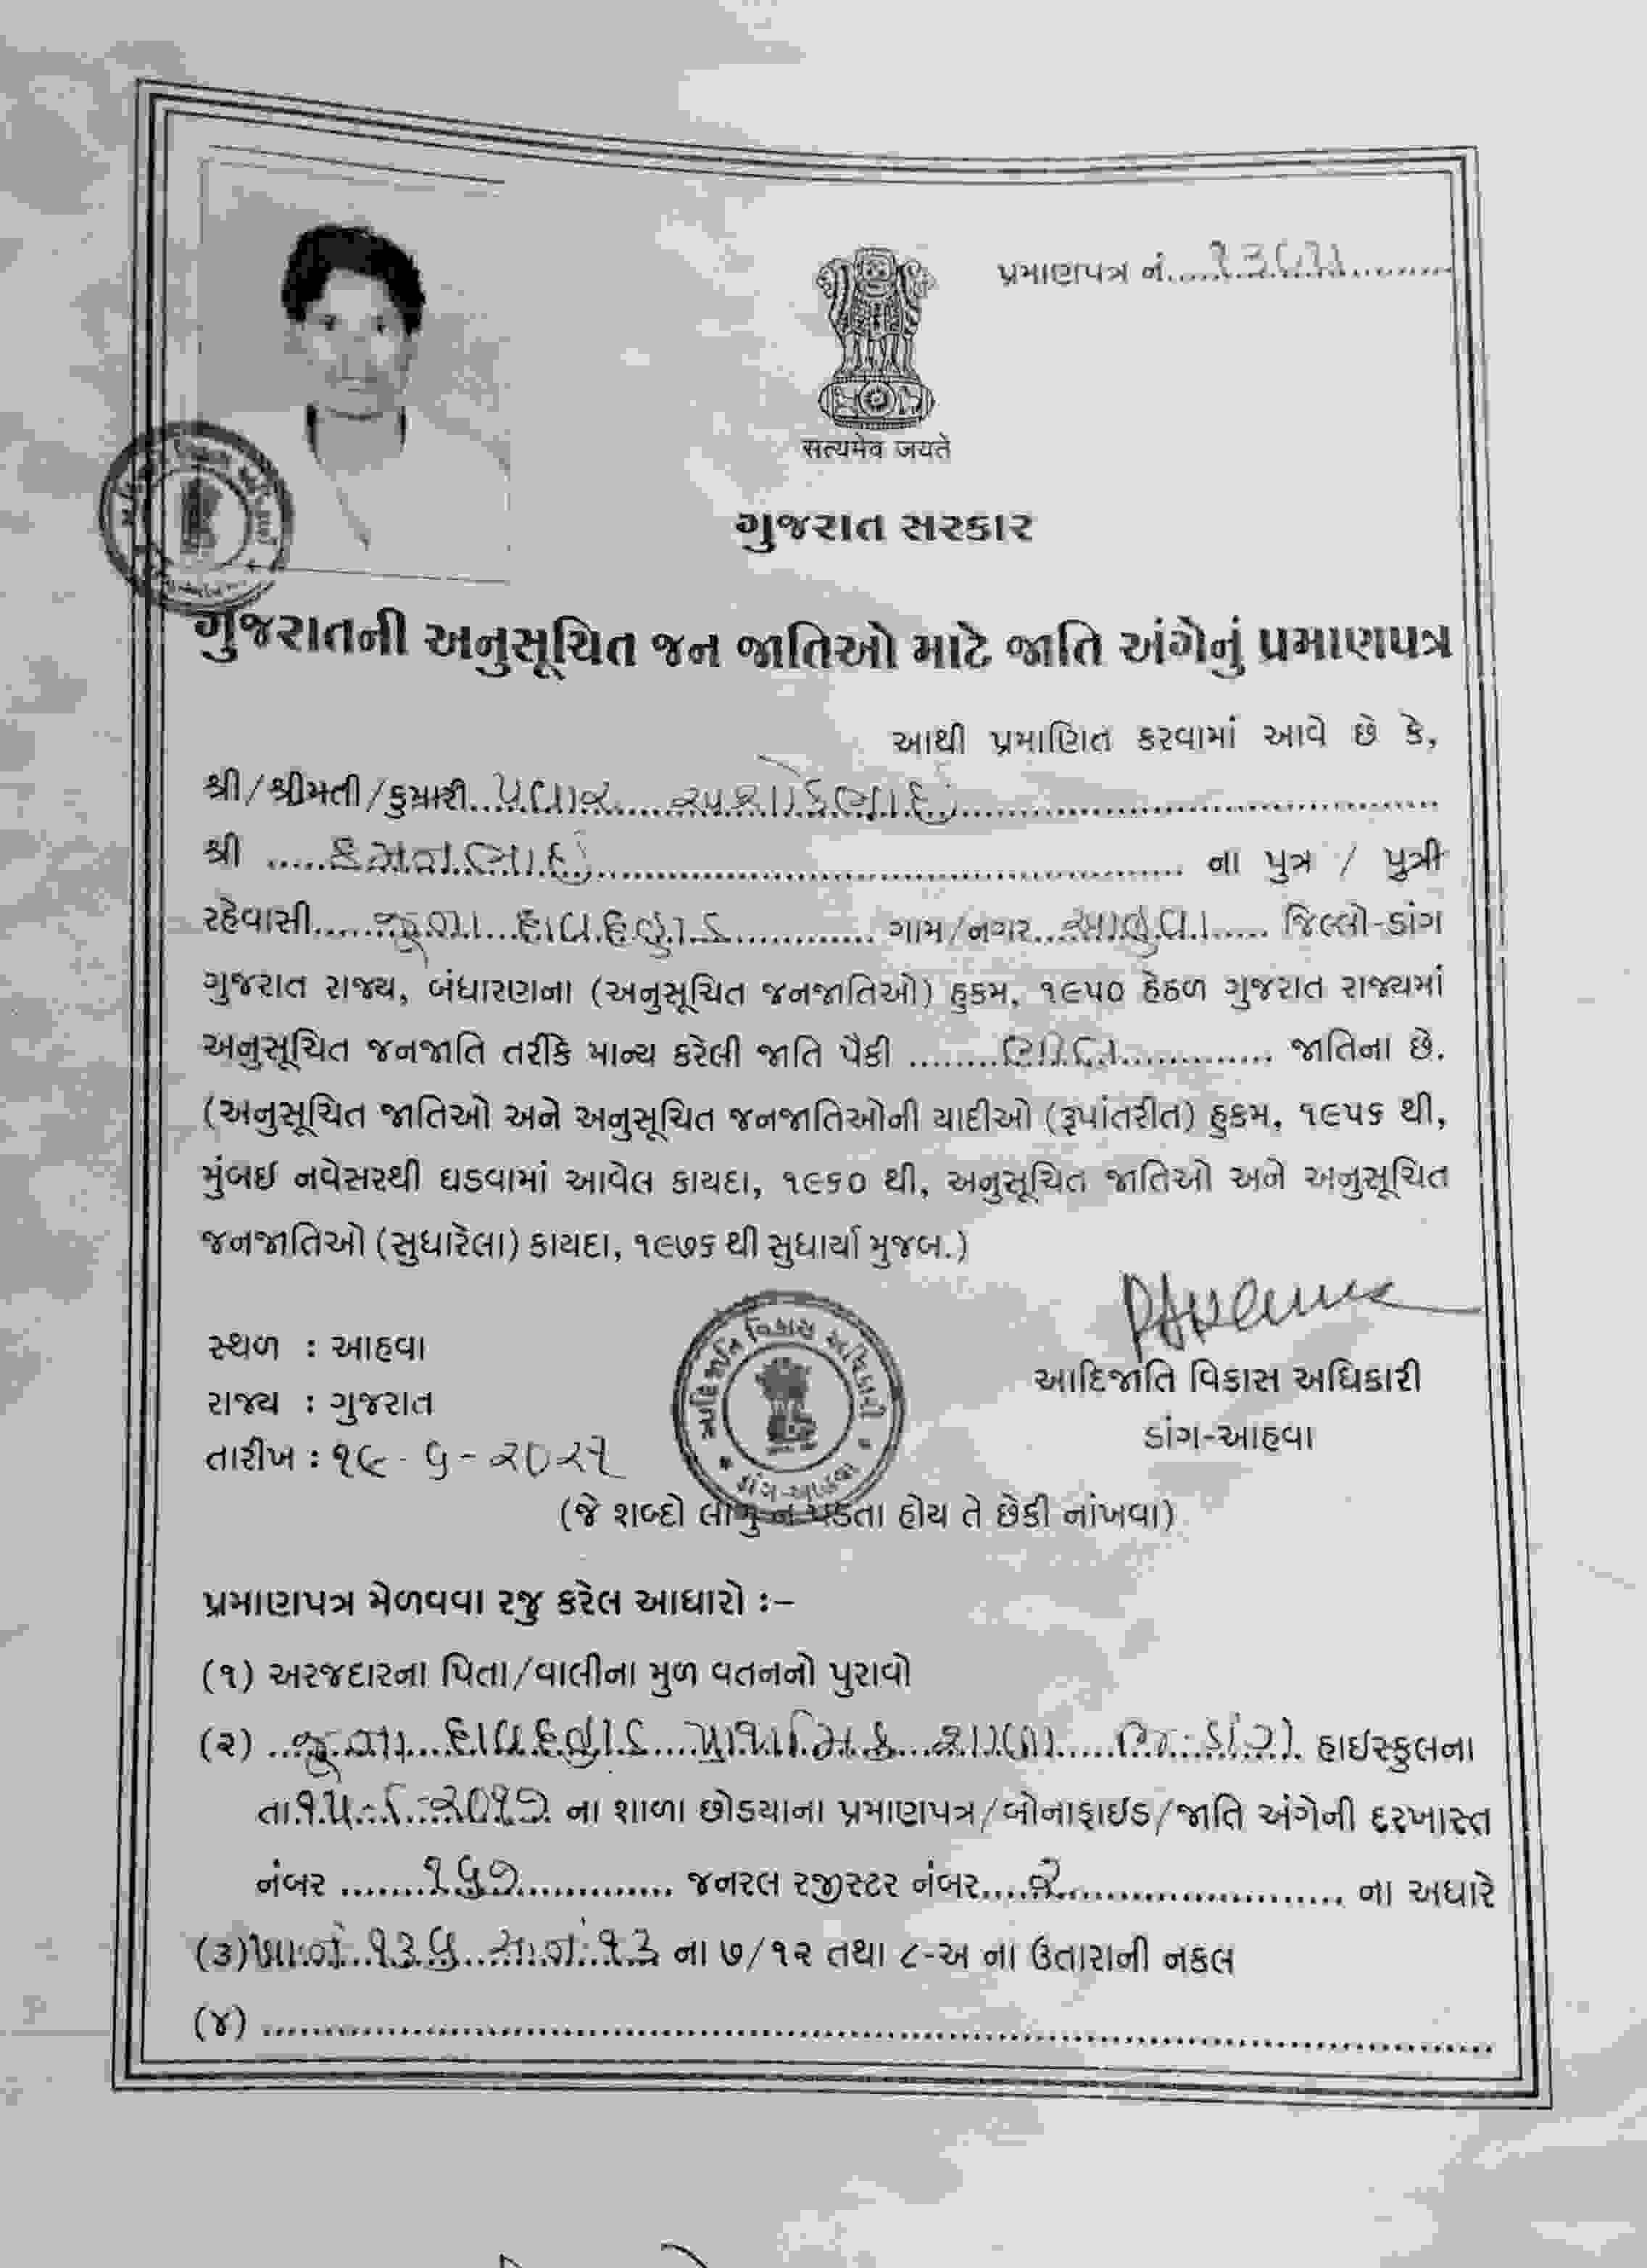 પ્રમાણપત્ર નં.
सत्यमेव जयते
ગુજરાત સરકાર
ગુજરાતની અનુસૂચિત જન જાતિઓ માટે જાતિ અંગેનું પ્રમાણપત્ર
આથી પ્રમાણિત કરવામાં આવે છે કે,
શ્રી/શ્રીમતી/કુમારી પવાર
શ્રી ના પુત્ર / પુત્રી
રહેવાસી જૂના ગામ/નગર આહવા જિલ્લો-ડાંગ
ગુજરાત રાજ્ય, બંધારણના (અનુસૂચિત જનજાતિઓ) હુકમ, ૧૯૫૦ હેઠળ ગુજરાત રાજ્યમાં
અનુસૂચિત જનજાતિ તરીકે માન્ય કરેલી જાતિ પૈકી જાતિના છે.
(અનુસૂચિત જાતિઓ અને અનુસૂચિત જનજાતિઓની યાદીઓ (રૂપાંતરીત) હુકમ, ૧૯૫૬ થી,
મુંબઇ નવેસરથી ઘડવામાં આવેલ કાયદા, ૧૯૬૦ થી, અનુસૂચિત જાતિઓ અને અનુસૂચિત
જનજાતિઓ (સુધારેલા) કાયદા, ૧૯૭૬ થી સુધાર્યા મુજબ.)
સ્થળ : આહવા
રાજ્ય : ગુજરાત
તારીખ :
આદિજાતિ વિકાસ અધિકારી
ડાંગ-આહવા
આદિજાતિ વિકાસ અધિકારી
ડાંગ-આહવા
(જે શબ્દો લાગુ ન પડતા હોય તે છેકી નાંખવા)
પ્રમાણપત્ર મેળવવા રજુ કરેલ આધારો :-
(૧) અરજદારના પિતા/વાલીના મુળ વતનનો પુરાવો
(૨) જૂના પ્રાથમિક શાળા જિ. ડાંગ હાઇસ્કુલના
તા. ના શાળા છોડયાના પ્રમાણપત્ર/બોનાફાઇડ/જાતિ અંગેની દરખાસ્ત
નંબર ૧૬૭ જનરલ રજીસ્ટર નંબર ના અધારે
(૩) ના ૭/૧૨ તથા ૮-અ ના ઉતારાની નકલ
(૪)